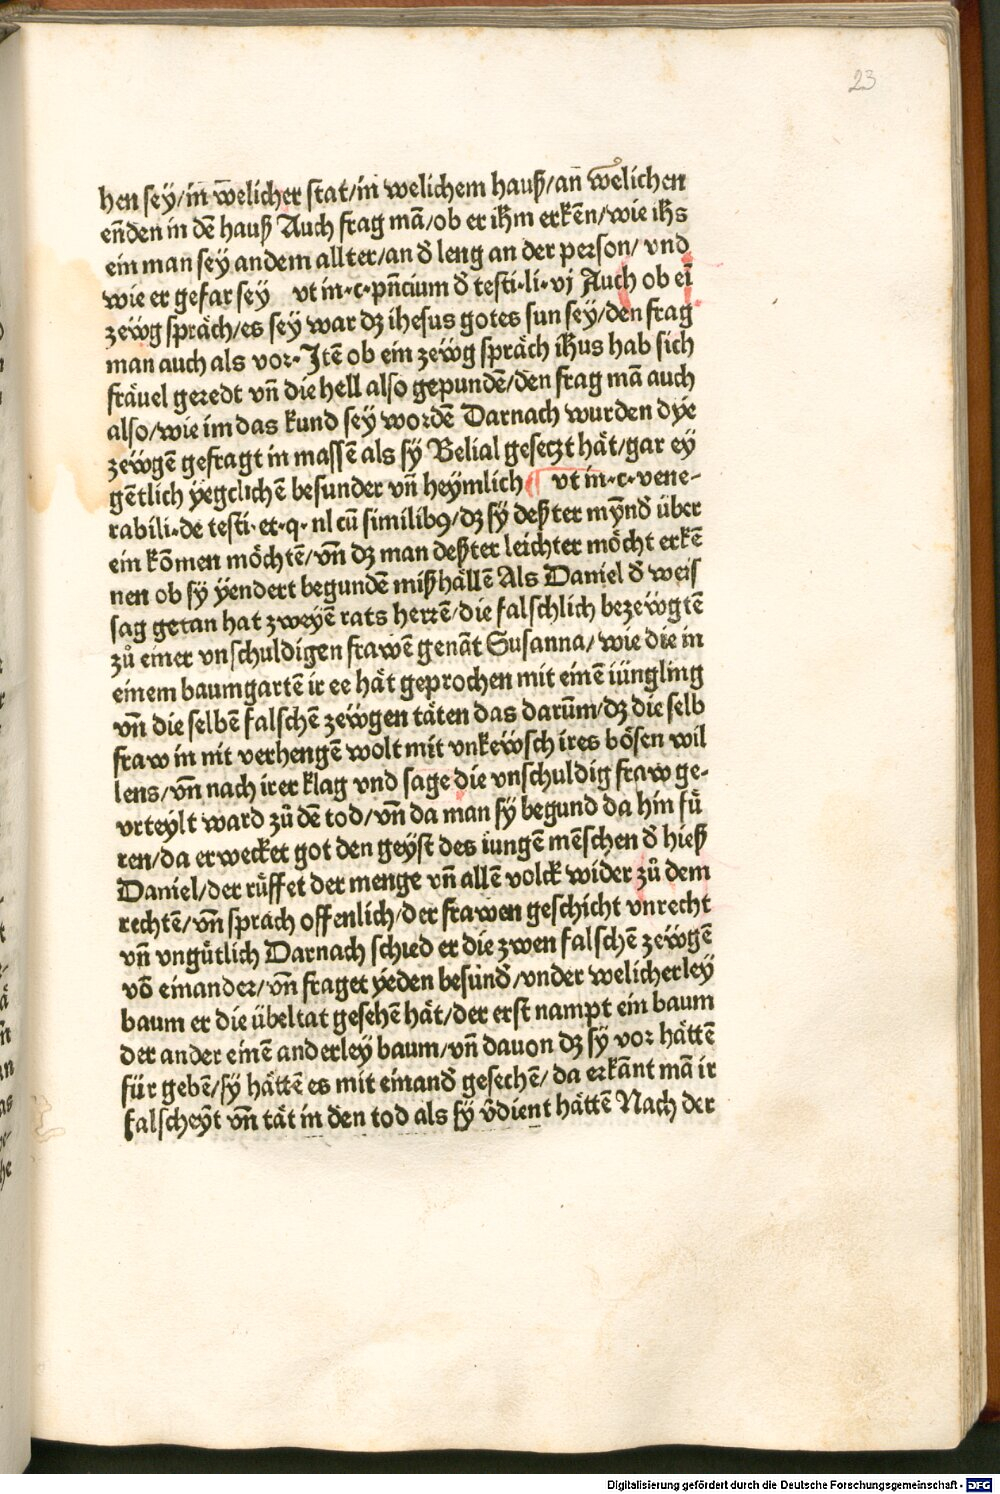 23
hen sey/in̄ w̄elicher stat/in welichem hauß/an̄ welichen
en̄den in dē hauß Auch frag mā/ob er ihm erkēn/wie ihs
ein man sey an dem allter/an d̄ leng an der person/ vnd
wie er gefar sey vt in·c·pn̄cium d̄ testi·li·vj Auch ob eī
zëwg spräch/es sey war dz ihesus gotes sun sey/den frag
man auch als vor·Jtē ob ein zëwg spräch ihus hab sich
fräuel geredt vn̄ die hell also gepundē/den frag mā auch
also/wie im das kund sey wordē Darnach wurden dye
zëwgē gefragt in massē als sy Belial gesetzt hät/gar ey
gētlich yegclichē besunder vn̄ heymlich vt in·c·vene-
rabili·de testi·et·q·nl cū similibꝯ/dz sy deßter mynd̄ über
ein kōmen möchtē/vn̄ dz man deßter leichter möcht erkē
nen ob sy yendert begundē mißhällē Als Daniel d̄ weis
sag getan hat zweyē rats herrē/die falschlich bezëwgtē
zů einer vnschuldigen frawē genāt Susanna/wie die in
einem baumgartē ir ee hät geprochen mit einē iüngling
vn̄ die selbē falschē zëwgen täten das darūm/dz die selb
fraw in nit verhengē wolt mit vnkëwsch ires bösen wil
lens/vn̄ nach irer klag vnd sage die vnschuldig fraw ge-
vrteylt ward zů dē tod/vn̄ da man sy begund da hin fü
ren/da erwecket got den geyst des iungē mēschen d̄ hieß
Daniel/der rüffet der menge vn̄ allē volck wider zů dem
rechtē/vn̄ sprach offenlich/der frawen geschicht vnrecht
vn̄ vngütlich Darnach schied er die zwen falschē zëwgē
vō einander/vn̄ fraget yeden besund̄/vnder welicherley
baum er die übeltat gesehē hät/der erst nampt ein baum
der ander einē anderley baum/vn̄ davon dz sy vor hättē
für gebē/sy hättē es mit einand̄ gesechē/da erkānt mā ir
falscheyt vn̄ tät in den tod als sy v̄dient hättē Nach der
Digitalisierung gefördert durch die Deutsche Forschungsgemeinschaft - DFG